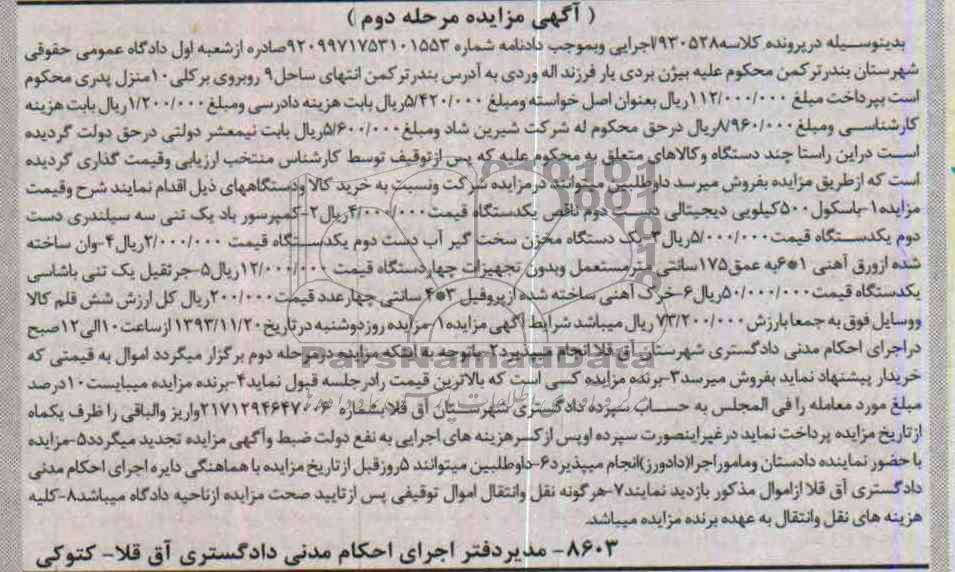 ( آگهی مزایده مرحله دوم )
بدینوسیله درپرونده کلاسه۷۹۳۰۵۲۸اجرایی وبموجب دادنامه شماره ۹۲۰۹۹۷۱۷۵۳۱۰۱۵۵۳صادره ازشعبه اول دادگاه عمومی حقوقی
شهرستان بندرترکمن محکوم علیه بیژن بردی یار فرزند اله وردی به آدرس بندرترکمن انتهای ساحل۹ روبروی برکلی۱۰منزل پدری محکوم
است بپرداخت مبلغ ۱۱۲/۰۰۰/۰۰۰ریال بعنوان اصل خواسته ومبلغ ۵/۴۲۰/۰۰۰ریال بابت هزینه دادرسی ومبلغ۱/۲۰۰/۰۰۰ریال بابت هزینه
کارشناسی ومبلغ۸/۹۶۰/۰۰۰ریال درحق محکوم له شرکت شیرین شاد ومبلغ۵/۶۰۰/۰۰۰ریال بابت نیمعشر دولتی درحق دولت گردیده
است دراین راستا چند دستگاه وکالاهای متعلق به محکوم علیه که پس ازتوقیف توسط کارشناس منتخب ارزیابی وقیمت گذاری گردیده
است که ازطریق مزایده بفروش میرسد داوطلبین میتوانند درمزایده شرکت ونسبت به خرید کالا ودستگاههای ذیل اقدام نمایند شرح وقیمت
مزایده۱-باسکول۵۰۰کیلویی دیجیتالی دست دوم ناقص یکدستگاه قیمت۴/۰۰۰/۰۰۰ریال۲-کمپرسور باد یک تنی سه سیلندری دست
دوم یکدستگاه قیمت۵/۰۰۰/۰۰۰ریال۳-یک دستگاه مخزن سخت گیر آب دست دوم یکدستگاه قیمت ۲/۰۰۰/۰۰۰ریال۴-وان ساخته
شده ازورق آهنی ۱*۶به عمق۱۷۵سانتی مترمستعمل وبدون تجهیزات چهاردستگاه قیمت ۱۲/۰۰۰/۰۰۰ریال۵-جرثقیل یک تنی باشاسی
یکدستگاه قیمت۵۰/۰۰۰/۰۰۰ریال۶-خرک آهنی ساخته شده ازپروفیل ۳*۴ سانتی چهارعدد قیمت۲۰۰/۰۰۰ریال کل ارزش شش قلم کالا
ووسایل فوق به جمعا بارزش ۷۳/۲۰۰/۰۰۰ ریال میباشد شرایط آگهی مزایده۱-مزایده روزدوشنبه درتاریخ۱۳۹۳/۱۱/۲۰ ازساعت۱۰الی۱۲صبح
دراجرای احکام مدنی دادگستری شهرستان آق قلا انجام میپذیرد۲-باتوجه به اینکه مزایده درمرحله دوم برگزار میگردد اموال به قیمتی که
خریدار پیشنهاد نماید بفروش میرسد۳-برنده مزایده کسی است که بالاترین قیمت رادرجلسه قبول نماید۴-برنده مزایده میبایست۱۰درصد
مبلغ مورد معامله را فی المجلس به حساب سپرده دادگستری شهرستان آق قلابشماره ۲۱۷۱۲۹۴۶۴۷۰۰۶واریز والباقی را ظرف یکماه
ازتاریخ مزایده پرداخت نماید درغیراینصورت سپرده اوپس ازکسرهزینه های اجرایی به نفع دولت ضبط وآگهی مزایده تجدید میگردد۵-مزایده
با حضور نماینده دادستان وماموراجرا(دادورز)انجام میپذیرد۶-داوطلبین میتوانند ۵روزقبل ازتاریخ مزایده با هماهنگی دایره اجرای احکام مدنی
دادگستری آق قلا ازاموال مذکور بازدید نمایند۷-هرگونه نقل وانتقال اموال توقیفی پس ازتایید صحت مزایده ازناحیه دادگاه میباشد۸-کلیه
هزینه های نقل وانتقال به عهده برنده مزایده میباشد.
۸۶۰۳- مدیردفتر اجرای احکام مدنی دادگستری آق قلا- کتوکی
ParsNamadData